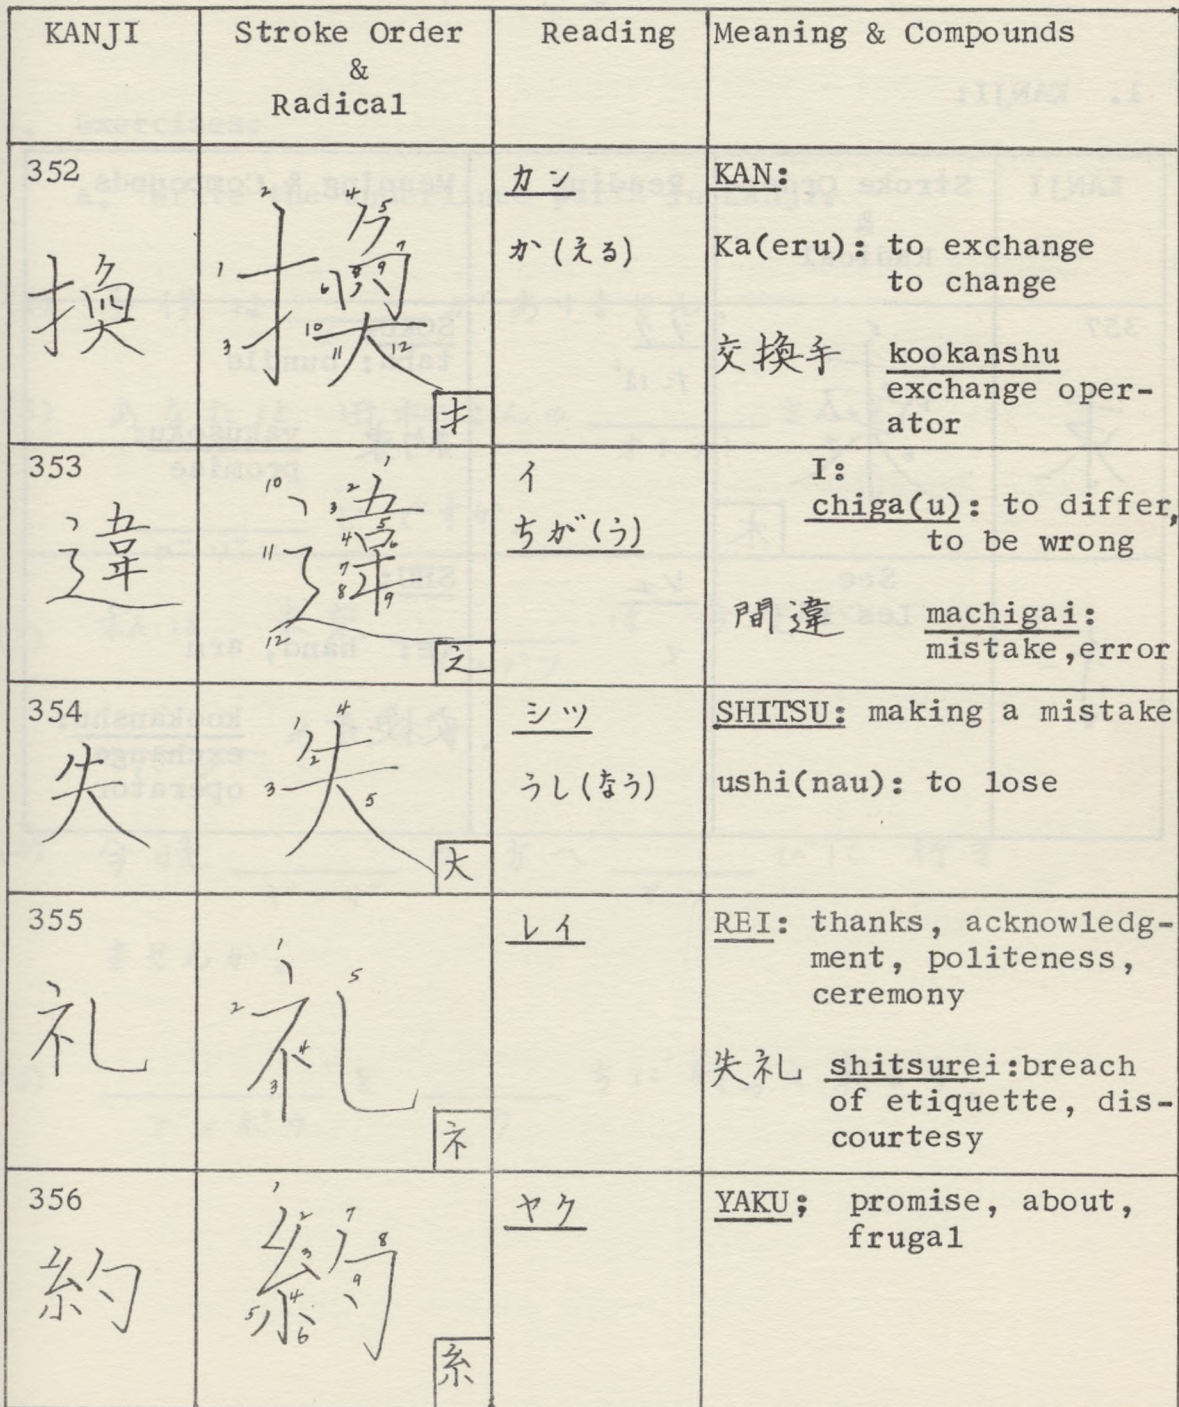 KANJI Stroke Order Reading Meaning & Compounds
&
Radical
352
換
1 2 3 4 5 6 7 8 9 10 11 12
換
扌
カン
か(える)
KAN:
Ka(eru): to exchange
to change
交換手 kookanshu
exchange oper-
ator
353
違
1 2 3 4 5 6 7 8 9 10 11 12
違
辶
イ
ちが(う)
I:
chiga(u): to differ,
to be wrong
間違 machigai:
mistake,error
354
失
1 2 3 4 5
失
大
シツ
うし(なう)
SHITSU: making a mistake
ushi(nau): to lose
355
礼
1 2 3 4 5
礼
ネ
レイ
REI: thanks, acknowledg-
ment, politeness,
ceremony
失礼 shitsurei:breach
of etiquette, dis-
courtesy
356
約
1 2 3 4 5 6 7 8 9
約
糸
ヤク
YAKU; promise, about,
frugal